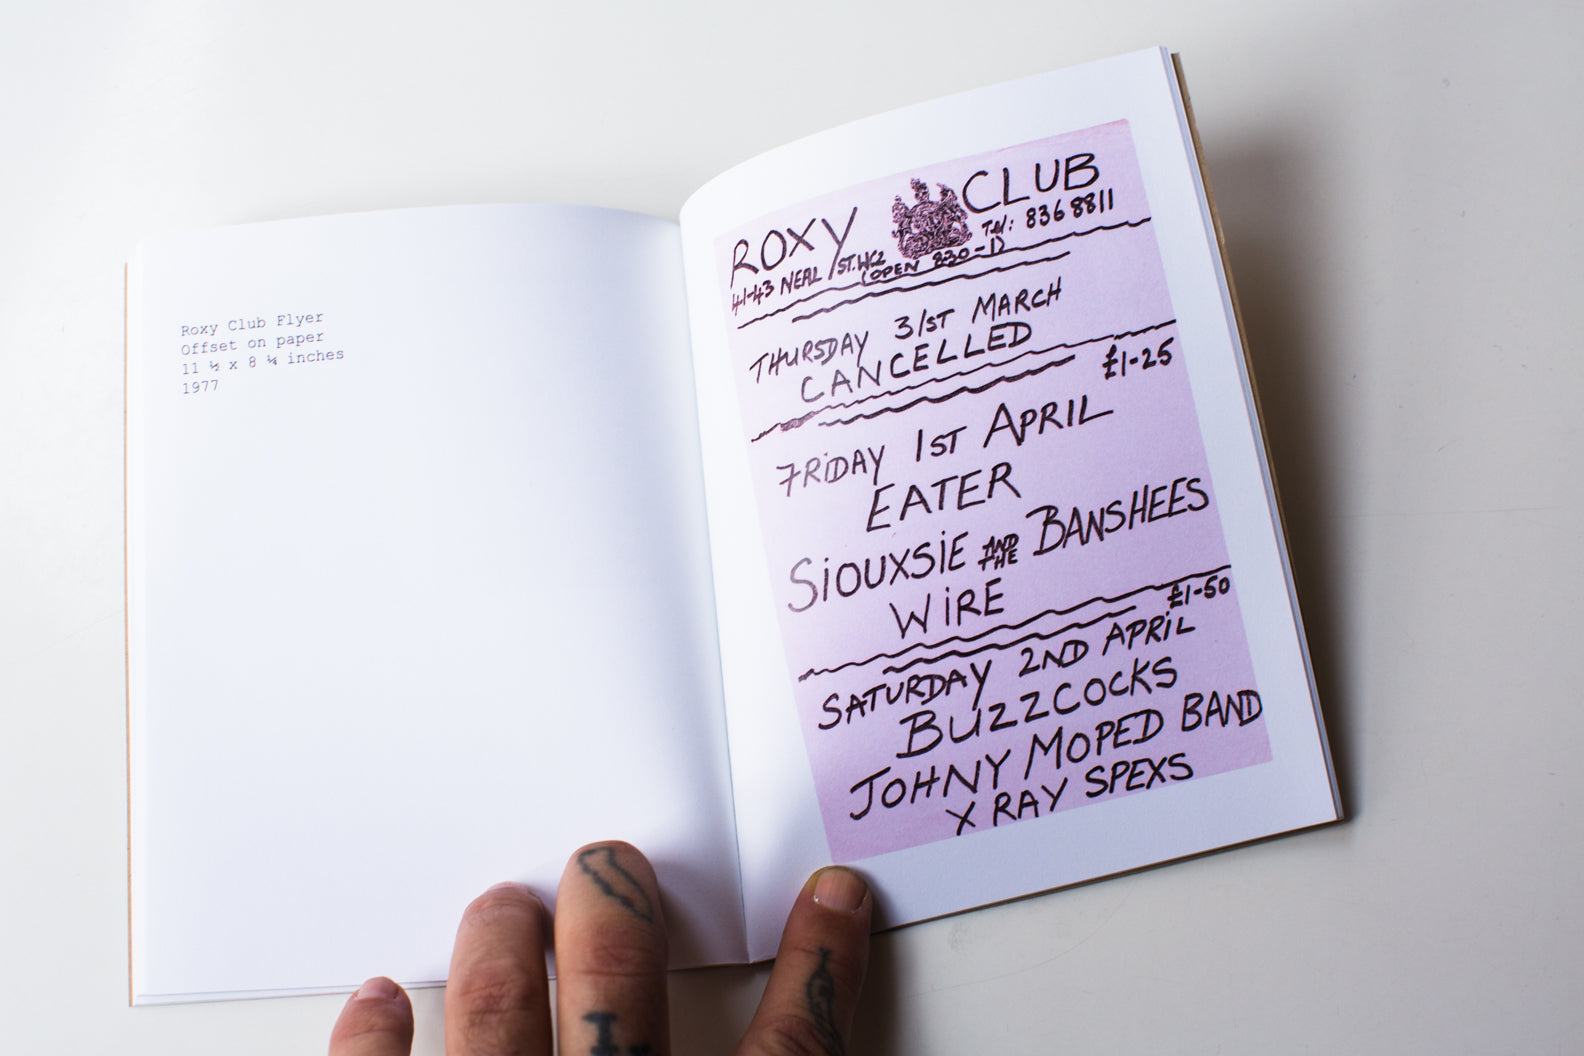 Roxy Club Flyer
Offset on paper
11 ½ x 8 ¼ inches
1977
ROXY CLUB
41-43 NEAL ST. WC2 Tel: 836 8811
(OPEN 830-1)
THURSDAY 31ST MARCH
CANCELLED
£1-25
FRiDAY 1ST APRIL
EATER
SiOUXSiE AND THE BANSHEES
WiRE
£1-50
SATURDAY 2ND APRiL
BUZZCOCKS
JOHNY MOPED BAND
X RAY SPEXS